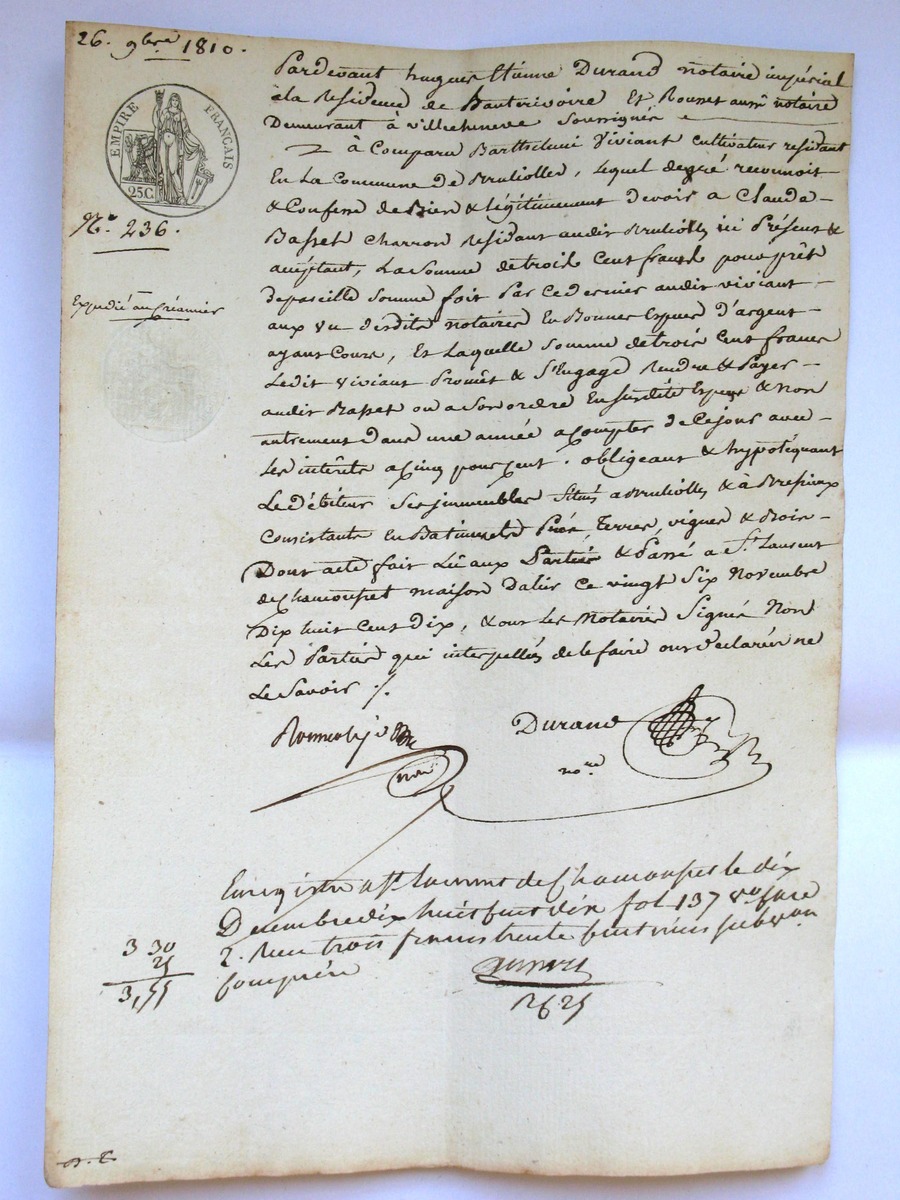 26. 9bre 1810.
EMPIRE FRANÇAIS
25C
No. 236.
Expedié au Créancier
Pardevant hugues Etienne Durand notaire impérial
à la Residence de hauterivoire Et Rounet aussi notaire
Demeurant à villechneve soussignés
à Comparu Barthelemi Viviant cultivateur residant
En La Commune de Bruliolles, lequel degré reconnoit
& Confesse de Bien & légitimement devoir a Claude
Basset charron Residant audit Brulliolles ici Présent &
aceptant, La Somme de trois Cent francs pour prêt
depareille Somme fait Par ce dernier audit viviant
aux vu desdits notaires En Bonnes Espèces D'argent
ayant Cours, Et Laquelle Somme de trois Cent francs
Ledit viviant Promêt & S'Engage Rendre & Payer
audit Basset ou a Son ordre En Surdite Espèces & non
autrement Dans une année a Compter de Ce jour avec
Les intérêts a Cinq pour Cent. obligeant & hypotéquant
Le débiteur Ses immeubles Situés a Brulliolles & à Bressieux
Consistants En Batiments Prés, Terres, vignes & Bois
Dont acte fait Lu aux Parties & Passé a St. Laurent
de Chamousset maison Dalin ce vingt Six Novembre
Dix huit Cent Dix, & ont Les Notaires Signé Non
Les Parties qui interpellés de le faire ont Declarés ne
Le Savoir ./.
Durand
nore
Enregistré a St. Laurent de Chamousset le dix
Decembre dix huit Cent dix fol 137 vo Case
2. Reçu trois francs trente Centimes subvon
Comprise
3 30
25
3,55